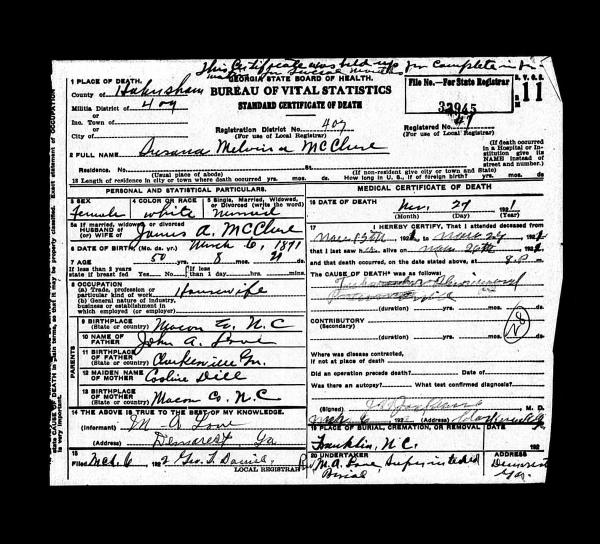 This Certificate was held up for complete
GEORGIA STATE BOARD OF HEALTH.
BUREAU OF VITAL STATISTICS
STANDARD CERTIFICATE OF DEATH
File No.—For State Registrar
32945
11
1 PLACE OF DEATH.
County of Habersham
Militia District of 409
or
Inc. Town of
or
City of
Registration District No. 409
(For use of Local Registrar)
Registered No. 47
(For use of Local Registrar)
(If death occurred in a Hospital or Institution give its NAME instead of street and number.)
2 FULL NAME Susana Melvina McClure
Residence. No. St.
(Usual place of abode)
(If non-resident give city or town and State)
13 Length of residence in city or town where death occurred yrs. mos. ds. How long in U. S., if of foreign birth? yrs. mos. ds.
PERSONAL AND STATISTICAL PARTICULARS.
3 SEX female
4 COLOR OR RACE white
5 Single, Married, Widowed, or Divorced (write the word) married
5a If married, widowed, or divorced
HUSBAND OF (or) WIFE OF James A. McClure
6 DATE OF BIRTH (Mo. da. yr.) March 6, 1871
7 AGE 50 yrs. 8 mos. 21 ds.
If less than 2 years state if breast fed Yes No
If less than 1 day hrs. min.
8 OCCUPATION
(a) Trade, profession or particular kind of work Housewife
(b) General nature of Industry, business or establishment in which employed (or employer)
9 BIRTHPLACE (State or country) Macon Co. N.C
PARENTS
10 NAME OF FATHER John A. Love
11 BIRTHPLACE OF FATHER (State or country) Clarkesville Ga.
12 MAIDEN NAME OF MOTHER Dill
13 BIRTHPLACE OF MOTHER (State or country) Macon Co. N.C
14 THE ABOVE IS TRUE TO THE BEST OF MY KNOWLEDGE.
(Informant) M. A. Love
(Address) Demorest, Ga
15 Filed Mch. 6, 1922 Geo. T. Daniel
LOCAL REGISTRAR
MEDICAL CERTIFICATE OF DEATH
16 DATE OF DEATH Nov. 27 1921
(Month) (Day) (Year)
17 I HEREBY CERTIFY, That I attended deceased from
Nov 15th 1921 to Nov 27 1921
that I last saw her alive on Nov 26th 1921
and that death occurred, on the date stated above, at 8 P m.
The CAUSE OF DEATH* was as follows:
(duration) yrs. mos. ds.
CONTRIBUTORY
(Secondary)
(duration) yrs. mos. ds.
Where was disease contracted, if not at place of death?
Did an operation precede death? Date of
Was there an autopsy? What test confirmed diagnosis?
(Signed) M. D.
192 (Address)
19 PLACE OF BURIAL, CREMATION, OR REMOVAL DATE
Franklin, N.C. 192
20 UNDERTAKER ADDRESS
M. A. Love, Superintended Burial Demorest Ga.